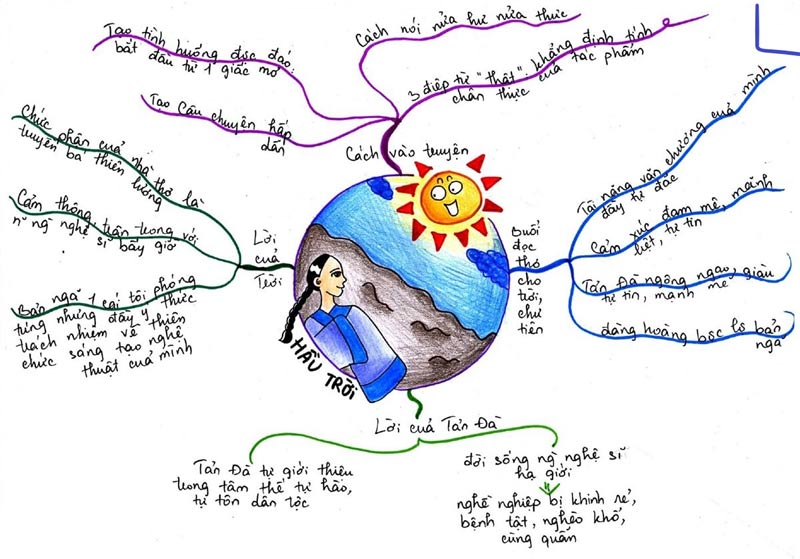 Cách vào truyện
Tạo tình huống độc đáo:
bắt đầu từ 1 giấc mơ
Tạo câu chuyện hấp
dẫn
Cách nói nửa hư nửa thực
3 điệp từ "thật": khẳng định tính
chân thực của tác phẩm
Buổi
đọc
thơ
cho
trời, chư
tiên
Tài năng văn chương của mình
đầy tự đắc
Cảm xúc đam mê, mãnh
liệt, tự tin
Tản Đà ngông ngạo, giàu
tự tin, mạnh mẽ
đàng hoàng bộc lộ bản
ngã
Lời
của
Trời
Chức phận của nhà thơ là
truyền bá thiên lương
Cảm thông, trân trọng với
n~ ng` nghệ sĩ bấy giờ
Bản ngã 1 cái tôi phóng
túng nhưng đầy ý thức
trách nhiệm về thiên
chức sáng tạo nghệ
thuật của mình
HẦU TRỜI
Lời của Tản Đà
Tản Đà tự giới thiệu
trong tâm thế tự hào,
tự tôn dân tộc
đời sống ng` nghệ sĩ
hạ giới
nghề nghiệp bị khinh rẻ,
bệnh tật, nghèo khổ,
cùng quẫn